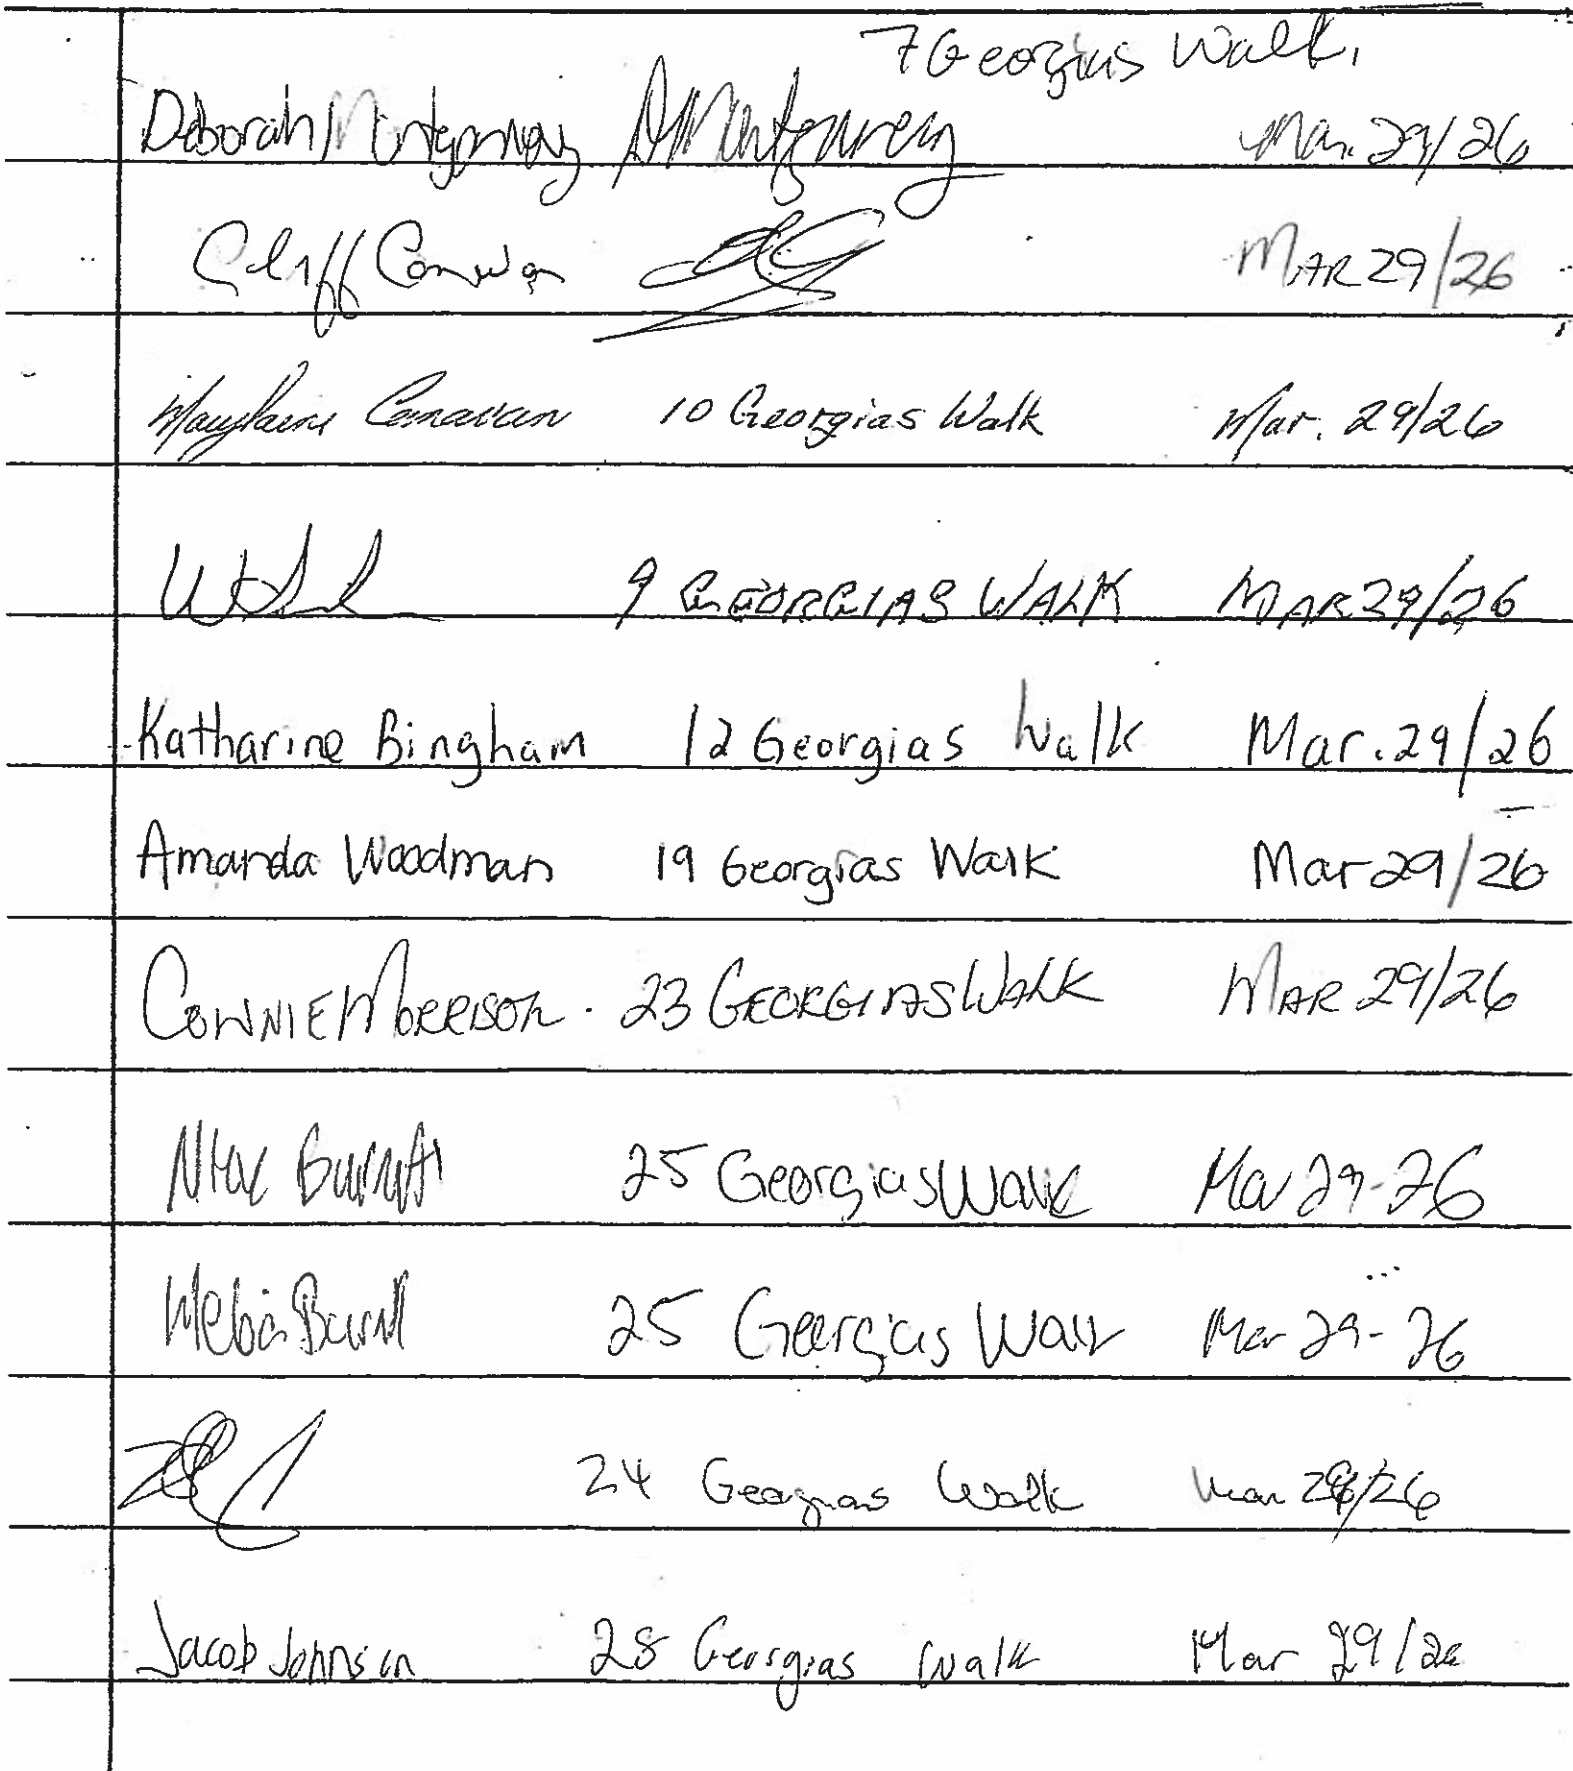 7 Georgias Walk.
Deborah Montgomery DMontgomery Mar. 29/26
Cliff MAR 29/26
10 Georgias Walk Mar. 29/26
9 GEORGIAS WALK MAR 29/26
Katharine Bingham 12 Georgias Walk Mar. 29/26
Amanda Woodman 19 Georgias Walk Mar 29/26
CONNIE MORRISON. 23 GEORGIAS WALK MAR 29/26
25 Georgias Walk Mar 29-26
25 Georgias Walk Mar 29-26
24 Georgias Walk Mar 29/26
Jacob Johnson 28 Georgias Walk Mar 29/26